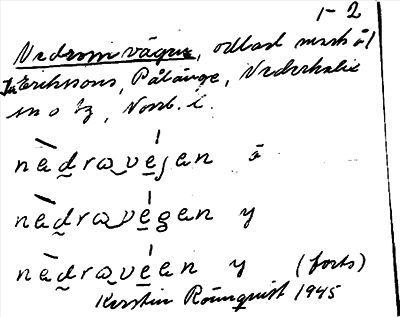 1-2
Nedromvägen, odlad mark öl
Erikssons, Pålänge, Nederkalix
sn o tg, Norrb. l.
nedra vejen ä
nedra vegen y
nedra veen y (forts)
Kerstin Rönnquist 1945